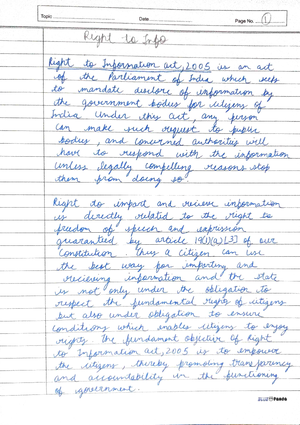 Topic
Date
Page No. 1
Right to Info
Right to Information act, 2005 is an act
of the Parliament of India which seeks
to mandate disclosure of information by
the government bodies for citizens of
India. Under this act, any person
can make such request to public
bodies, and concerned authorities will
have to respond with the information
(unless legally compelling reasons stop
them from doing so.
Right to impart and recieve information
is directly related to the right to
freedom of speech and expression
guaranteed by article 19(1)(a) of our
Constitution. Thus a citizen can use
the best way for imparting and
recieving information and the state
is not only under the obligation to
respect the fundamental rights of citizens
but also under obligation to ensure
conditions which enables citizens to enjoy
rights. The fundament objective of Right
to Information act, 2005 is to empower
the citizens, thereby promoting transparency
and accountability in the functioning
of government.